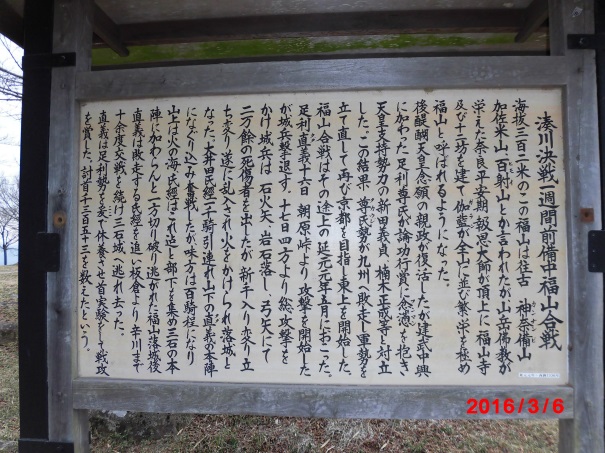 湊川決戦一週間前備中福山合戦
海抜三百二米のこの福山は往古 神奈備山
加佐米山 百射山とか言われたが山岳佛教が
栄えた奈良平安期、報恩大師が頂上に福山寺
及び十二坊を建て伽藍が全山に並び繁栄を極め
福山と呼ばれるようになった。
後醍醐天皇念願の親政が復活したが建武中興
に加わった足利尊氏が論功行賞に念懣を抱き
天皇支持勢力の新田義貞、楠木正成等と対立
した。この結果 尊氏勢が九州へ敗走し軍勢を
立て直して再び京都を目指し東上を開始した。
福山合戦はその途上の延元元年五月におこった。
足利直義十六日 朝原峠より攻撃を開始した
が城兵撃退す、十七日四方より総攻撃を
かけ城兵は 石火矢、岩石落し 弓矢にて
二万餘の死傷者を出したが新手入り変り立
ち変り遂に乱入され火をかけられ落城と
なった。大井田氏経一千騎引連れ山下の直義の本陣
になだれ込み奮戦したが味方は百騎程になり
山上は火の海、氏経はこれ迄と部下を集め三石の本
陣に加わらんと一方切り破り逃がれた福山落城後
直義は敗走する氏経を追い板倉より辛川まで
十余度交戦を続け三石城へ逃れ去った。
直義は足利勢を集て休養させ首実験をして戦攻
を賞した。討首千三百五十三を数えたという。
2016/3/6